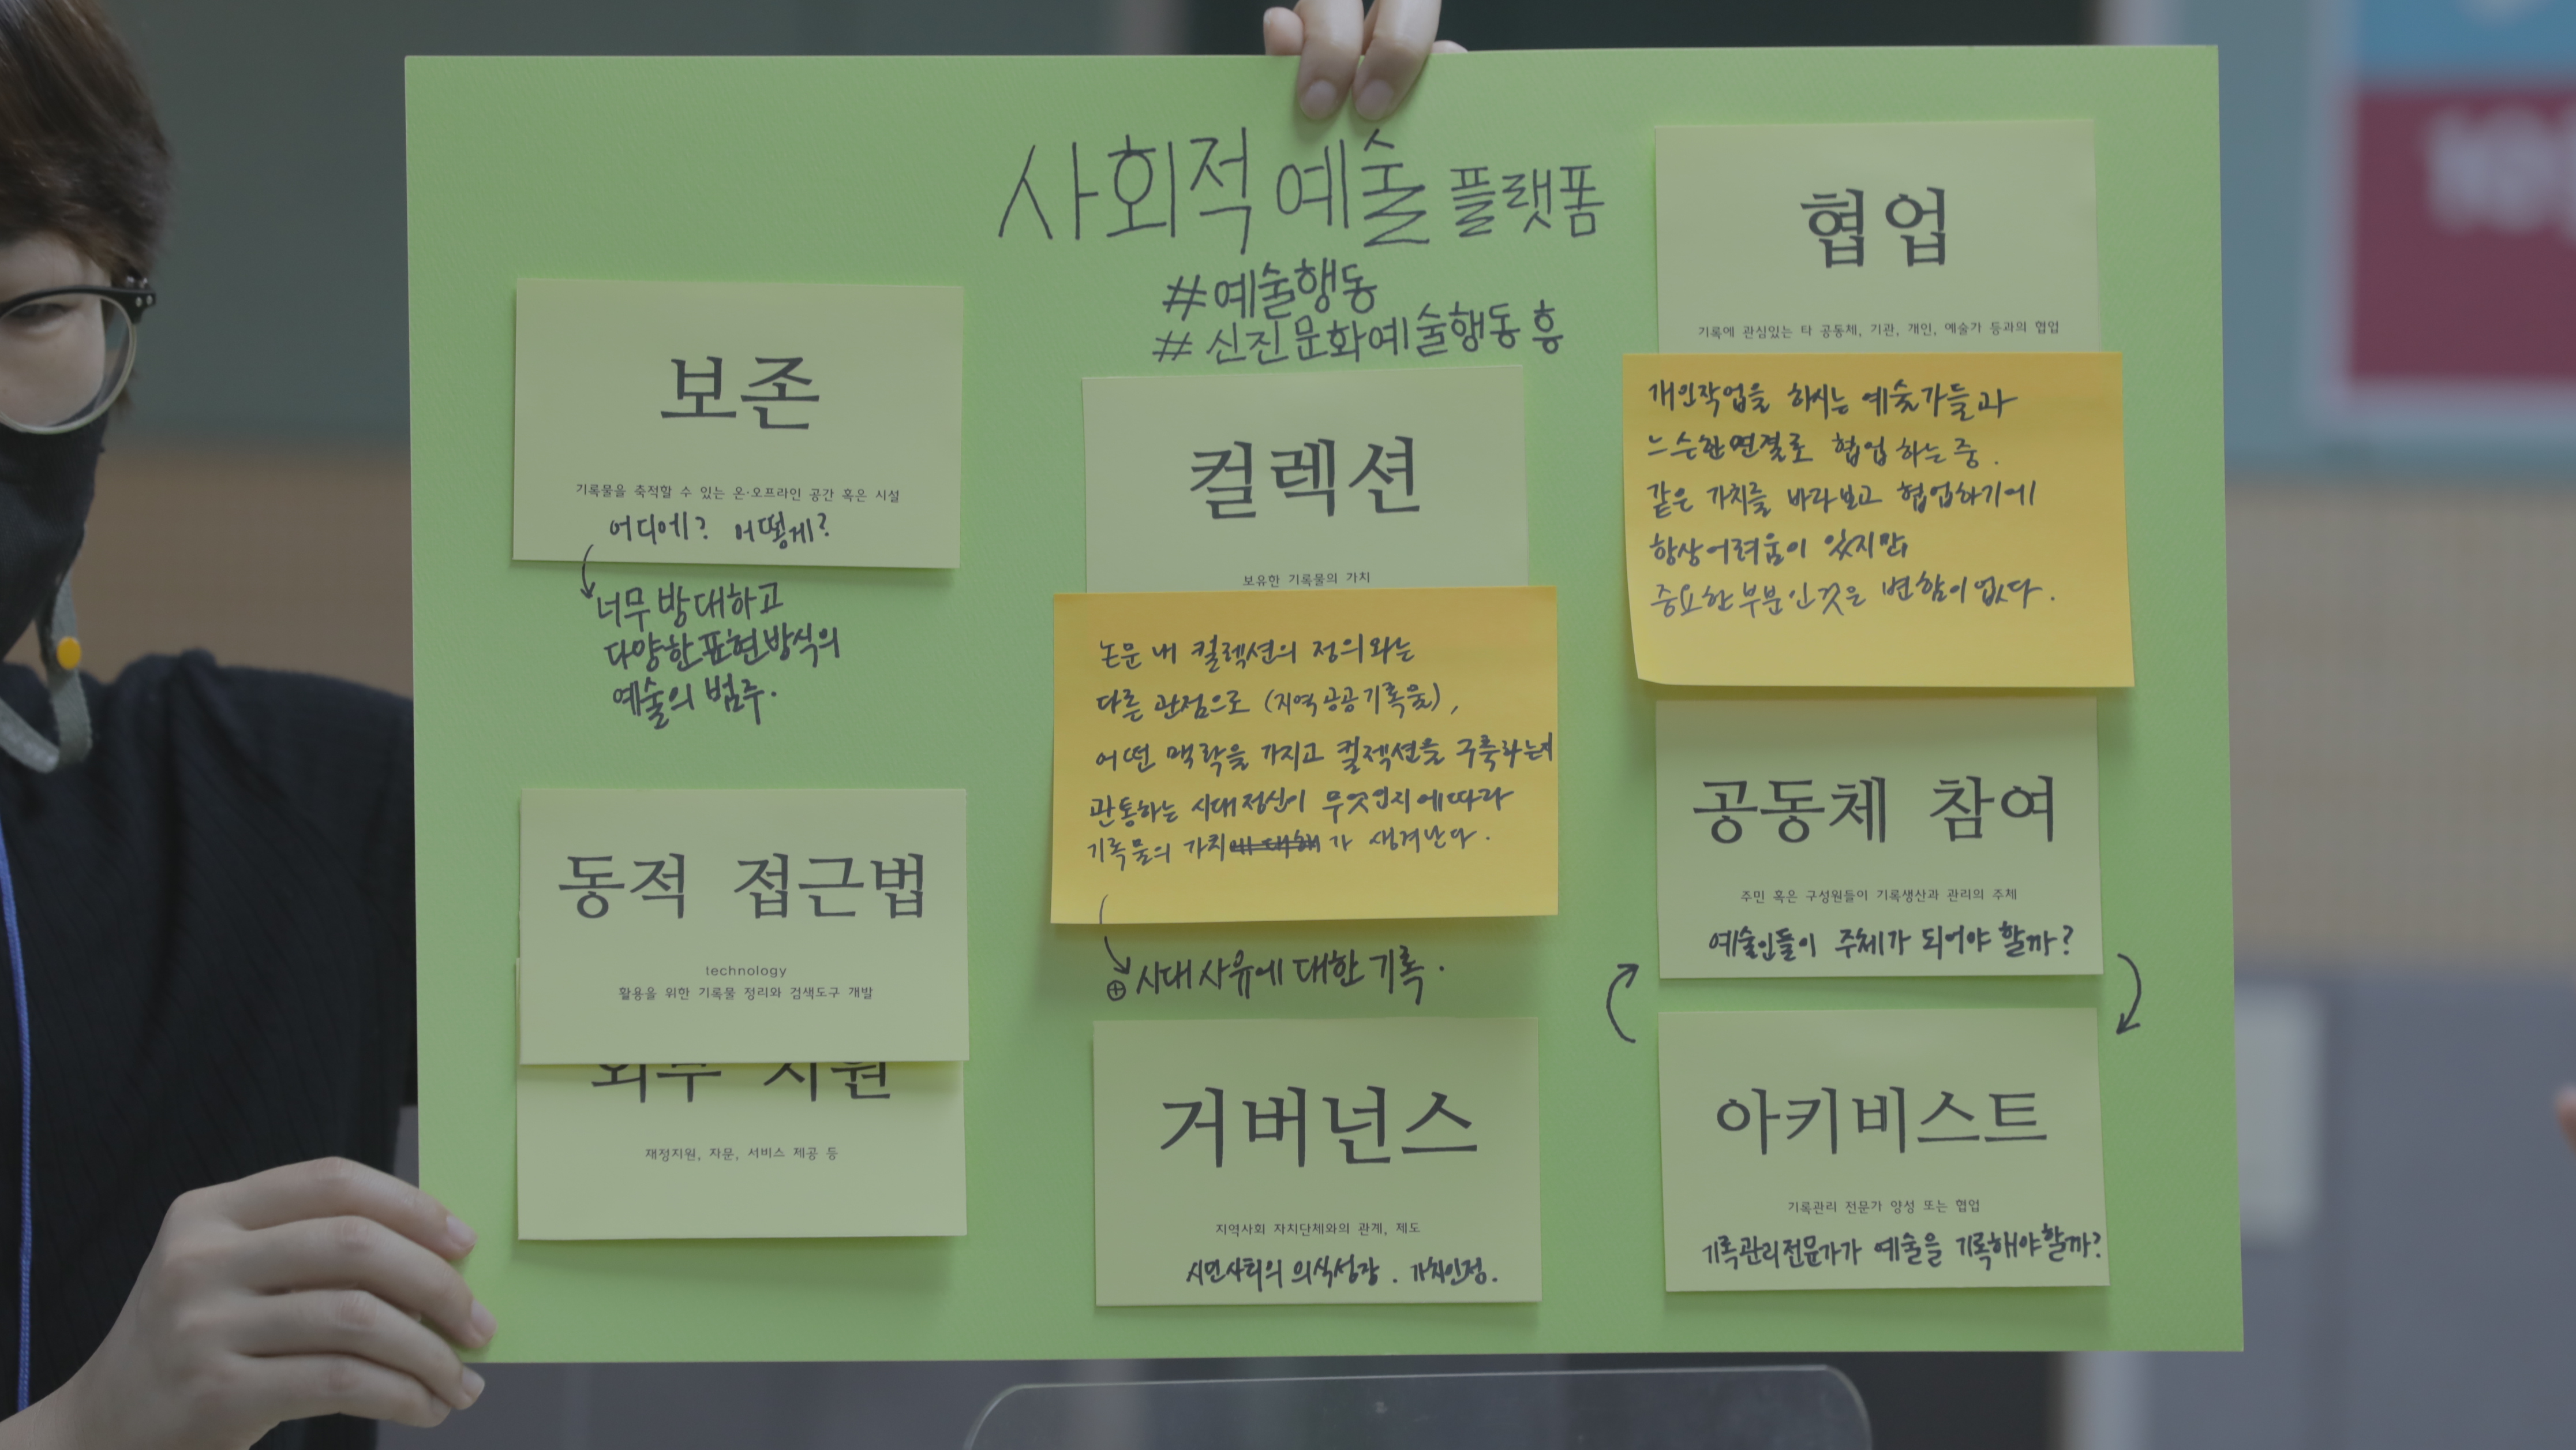 사회적 예술 플랫폼
#예술행동
#신진문화예술행동 흥
보존
기록물을 축적할 수 있는 온·오프라인 공간 혹은 시설
어디에? 어떻게?
너무 방대하고
다양한 표현방식의
예술의 범주.
동적 접근법
technology
활용을 위한 기록물 정리와 검색도구 개발
외부 지원
재정지원, 자문, 서비스 제공 등
컬렉션
보유한 기록물의 가치
논문 내 컬렉션의 정의와는
다른 관점으로 (지역공공기록물),
어떤 맥락을 가지고 컬렉션을 구축하는지
관통하는 시대정신이 무엇인지에 따라
기록물의 가치에 대해가 생겨난다.
⊕ 시대사유에 대한 기록.
거버넌스
지역사회 자치단체와의 관계, 제도
시민사회의 의식성장. 가치인정.
협업
기록에 관심있는 타 공동체, 기관, 개인, 예술가 등과의 협업
개인작업을 하시는 예술가들과
느슨한연결로 협업 하는 중.
같은 가치를 바라보고 협업하기에
항상어려움이 있지만
중요한부분인것은 변함이없다.
공동체 참여
주민 혹은 구성원들이 기록생산과 관리의 주체
예술인들이 주체가 되어야 할까?
아키비스트
기록관리 전문가 양성 또는 협업
기록관리전문가가 예술을 기록해야할까?